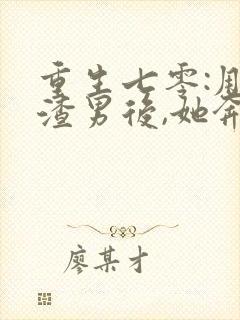 重生七零:
渣男後,她奔
廖某才